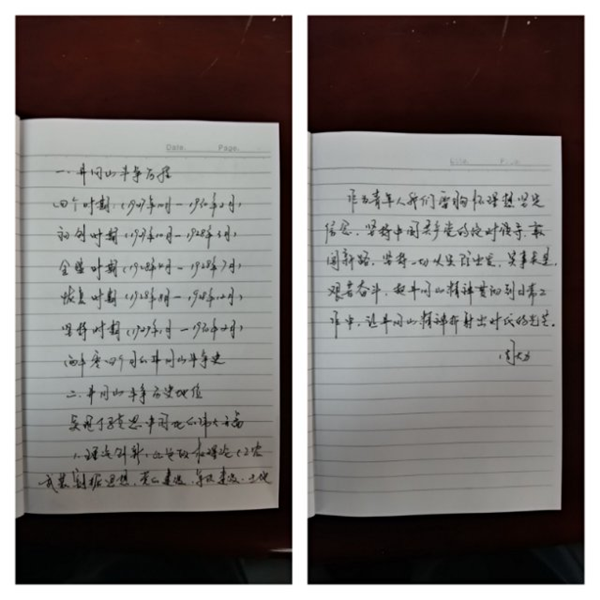 Date. Page.
一、井冈山斗争历程
四个时期：(1927年10月—1930年2月)
初创时期 (1927年10月—1928年3月)
全盛时期 (1928年4月—1928年7月)
恢复时期 (1928年8月—1928年12月)
坚持时期 (1929年1月—1930年2月)
两年零四个月的井冈山斗争史
二、井冈山斗争历史地位
马思主义中国化的伟大
1. 理论创新：
武装割据思想，党的建设，军队建设，
作为青年人我们要胸怀理想坚定
信念，坚持中国共产党的绝对领导，敢
闯新路，坚持一切从实际出发，实事求是
艰苦奋斗，把井冈山精神贯彻到日常工
作中，让井冈山精神折射出时代的光芒。